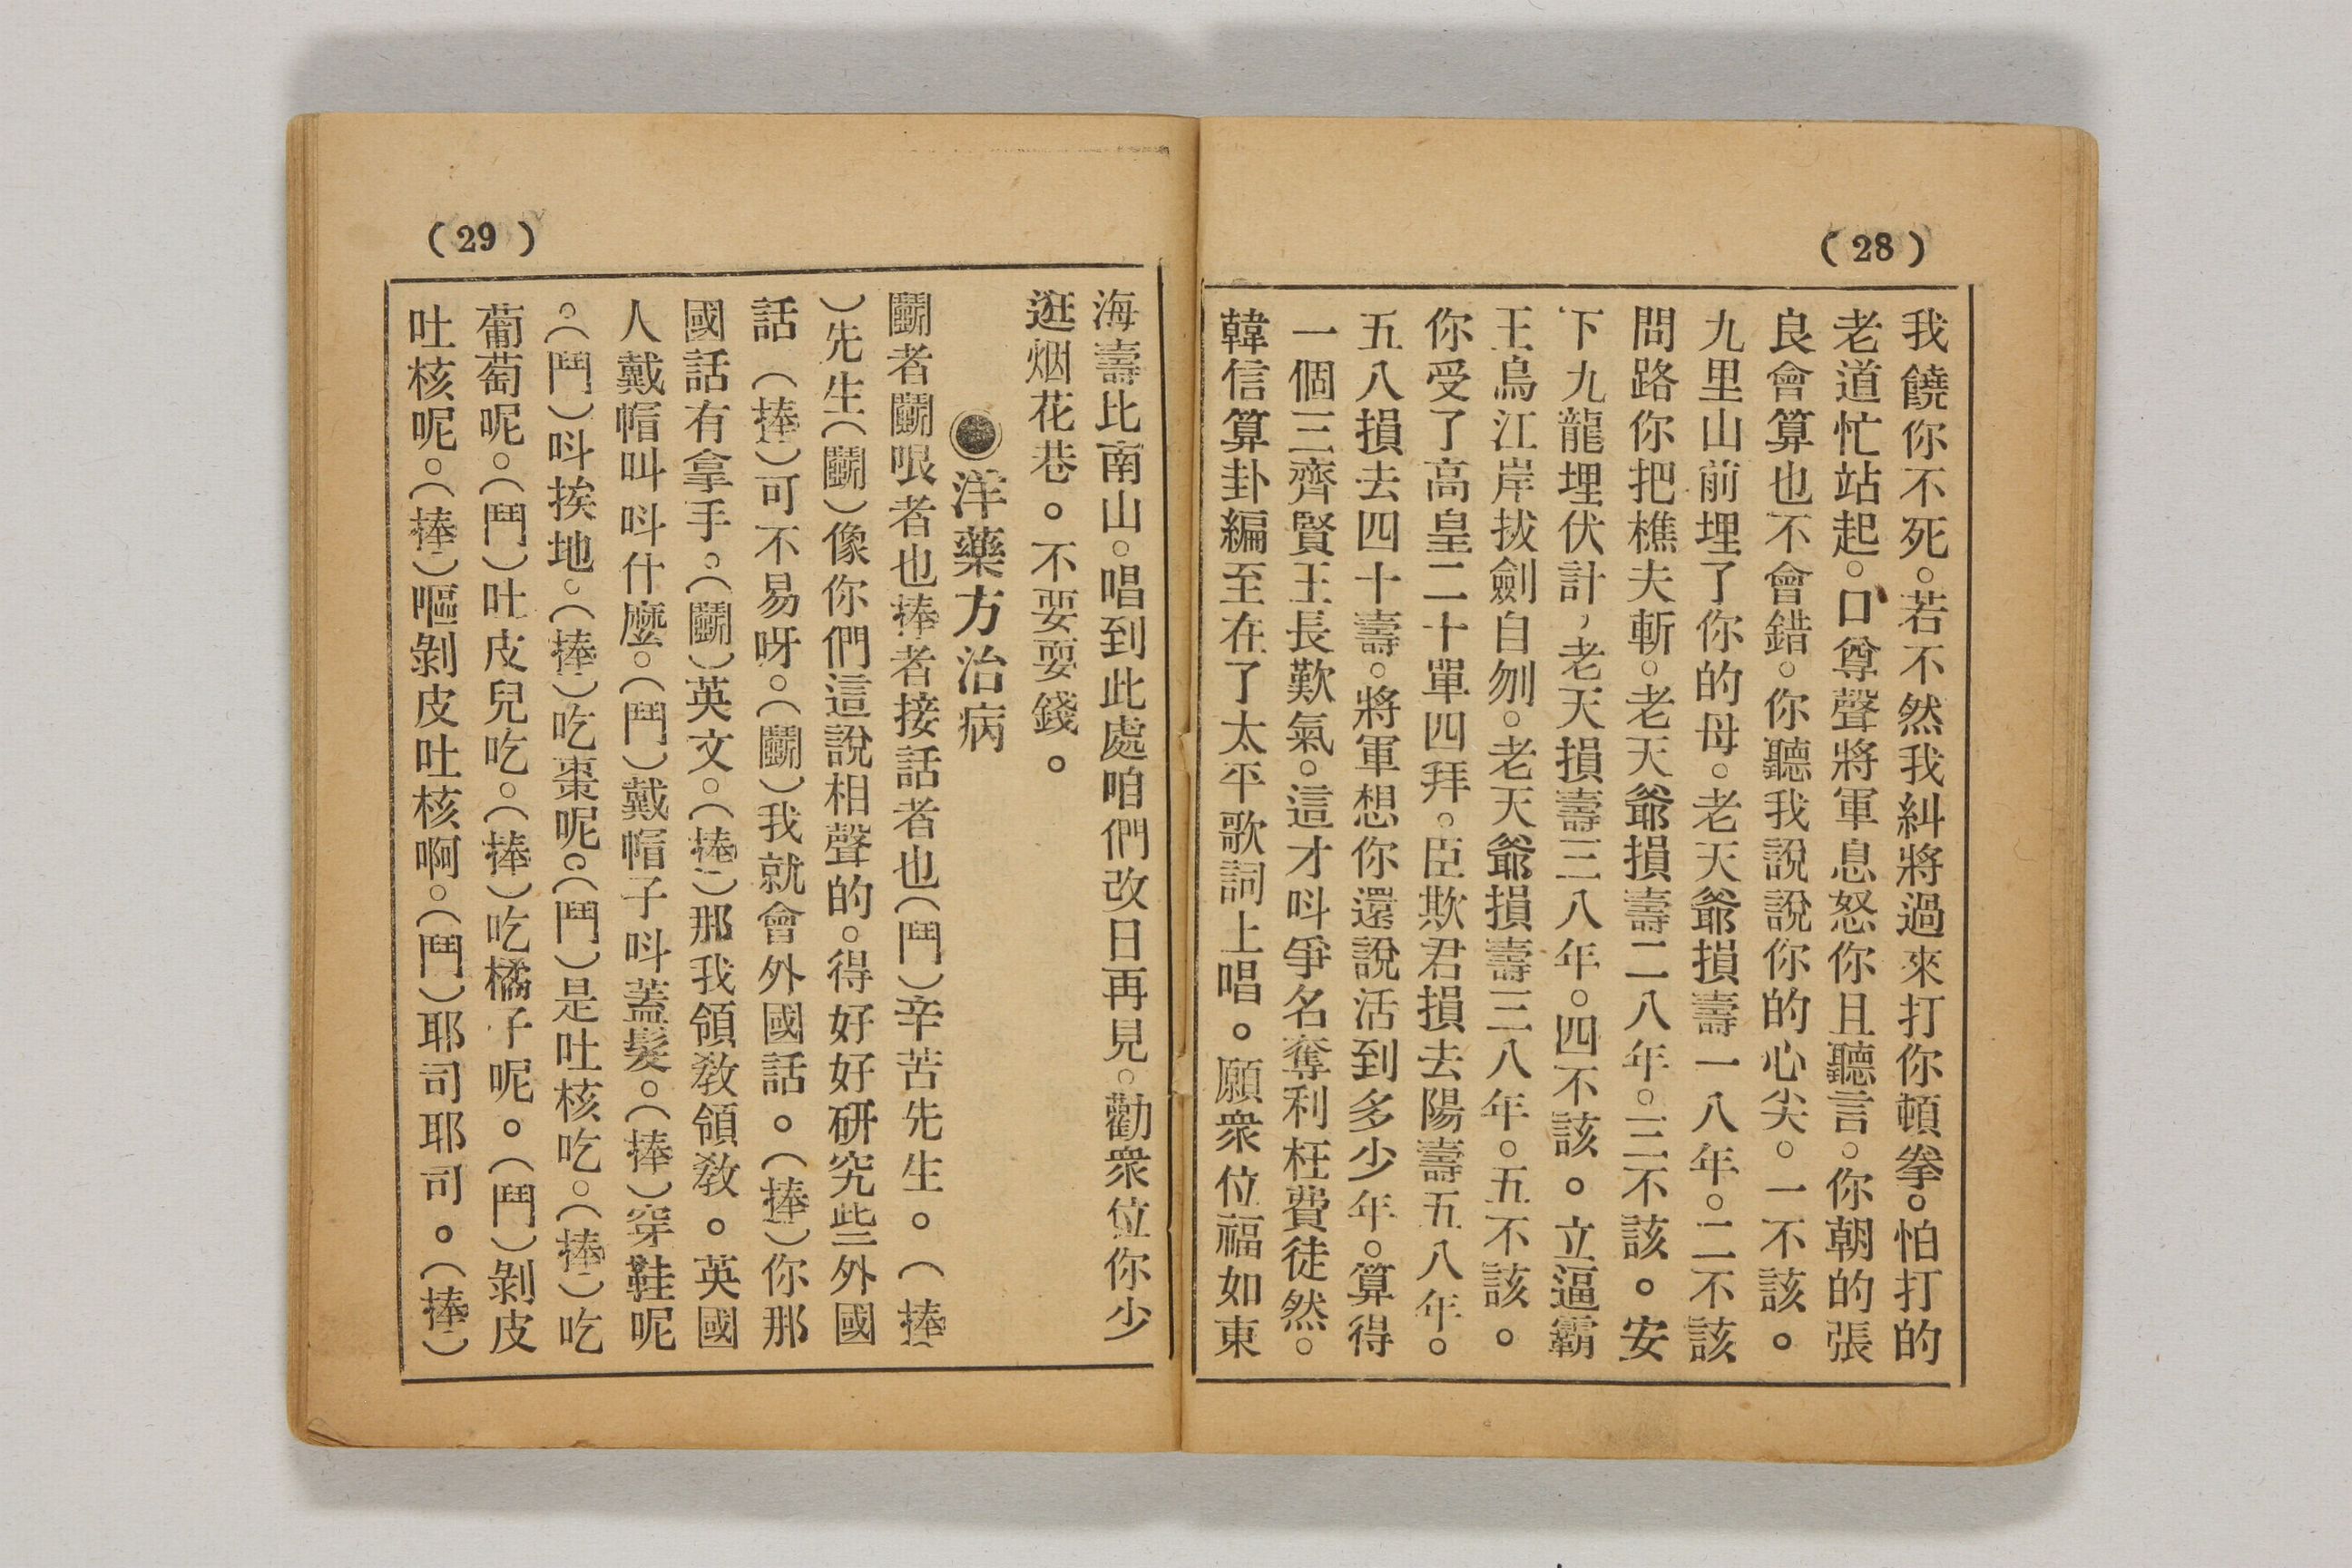 (28)
我饒你不死。若不然我糾將過來打你頓拳。怕打的
老道忙站起。口尊聲將軍息怒你且聽言。你朝的張
良會算也不會錯。你聽我說說你的心尖。一不該。
九里山前埋了你的母。老天爺損壽一八年。二不該
問路你把樵夫斬。老天爺損壽二八年。三不該。安
下九龍埋伏計，老天損壽三八年。四不該。立逼霸
王烏江岸拔劍自刎。老天爺損壽三八年。五不該。
你受了高皇二十單四拜。臣欺君損去陽壽五八年。
五八損去四十壽。將軍想你還說活到多少年。算得
一個三齊賢王長歎氣。這才呌爭名奪利枉費徒然。
韓信算卦編至在了太平歌詞上唱。願衆位福如東
(29)
海壽比南山。唱到此處咱們改日再見。勸衆位你少
逛烟花巷。不要耍錢。
●洋藥方治病
鬭者鬭哏者也捧者接話者也（鬥）辛苦先生。（捧
）先生（鬭）像你們這說相聲的。得好好研究些外國
話（捧）可不易呀。（鬭）我就會外國話。（捧）你那
國話有拿手。（鬭）英文。（捧）那我領敎領敎。英國
人戴帽叫呌什麼。（鬥）戴帽子呌蓋髮。（捧）穿鞋呢
。（鬥）呌挨地。（捧）吃棗呢。（鬥）是吐核吃。（捧）吃
葡萄呢。（鬥）吐皮兒吃。（捧）吃橘子呢。（鬥）剝皮
吐核呢。（捧）嘔剝皮吐核啊。（鬥）耶司耶司。（捧）